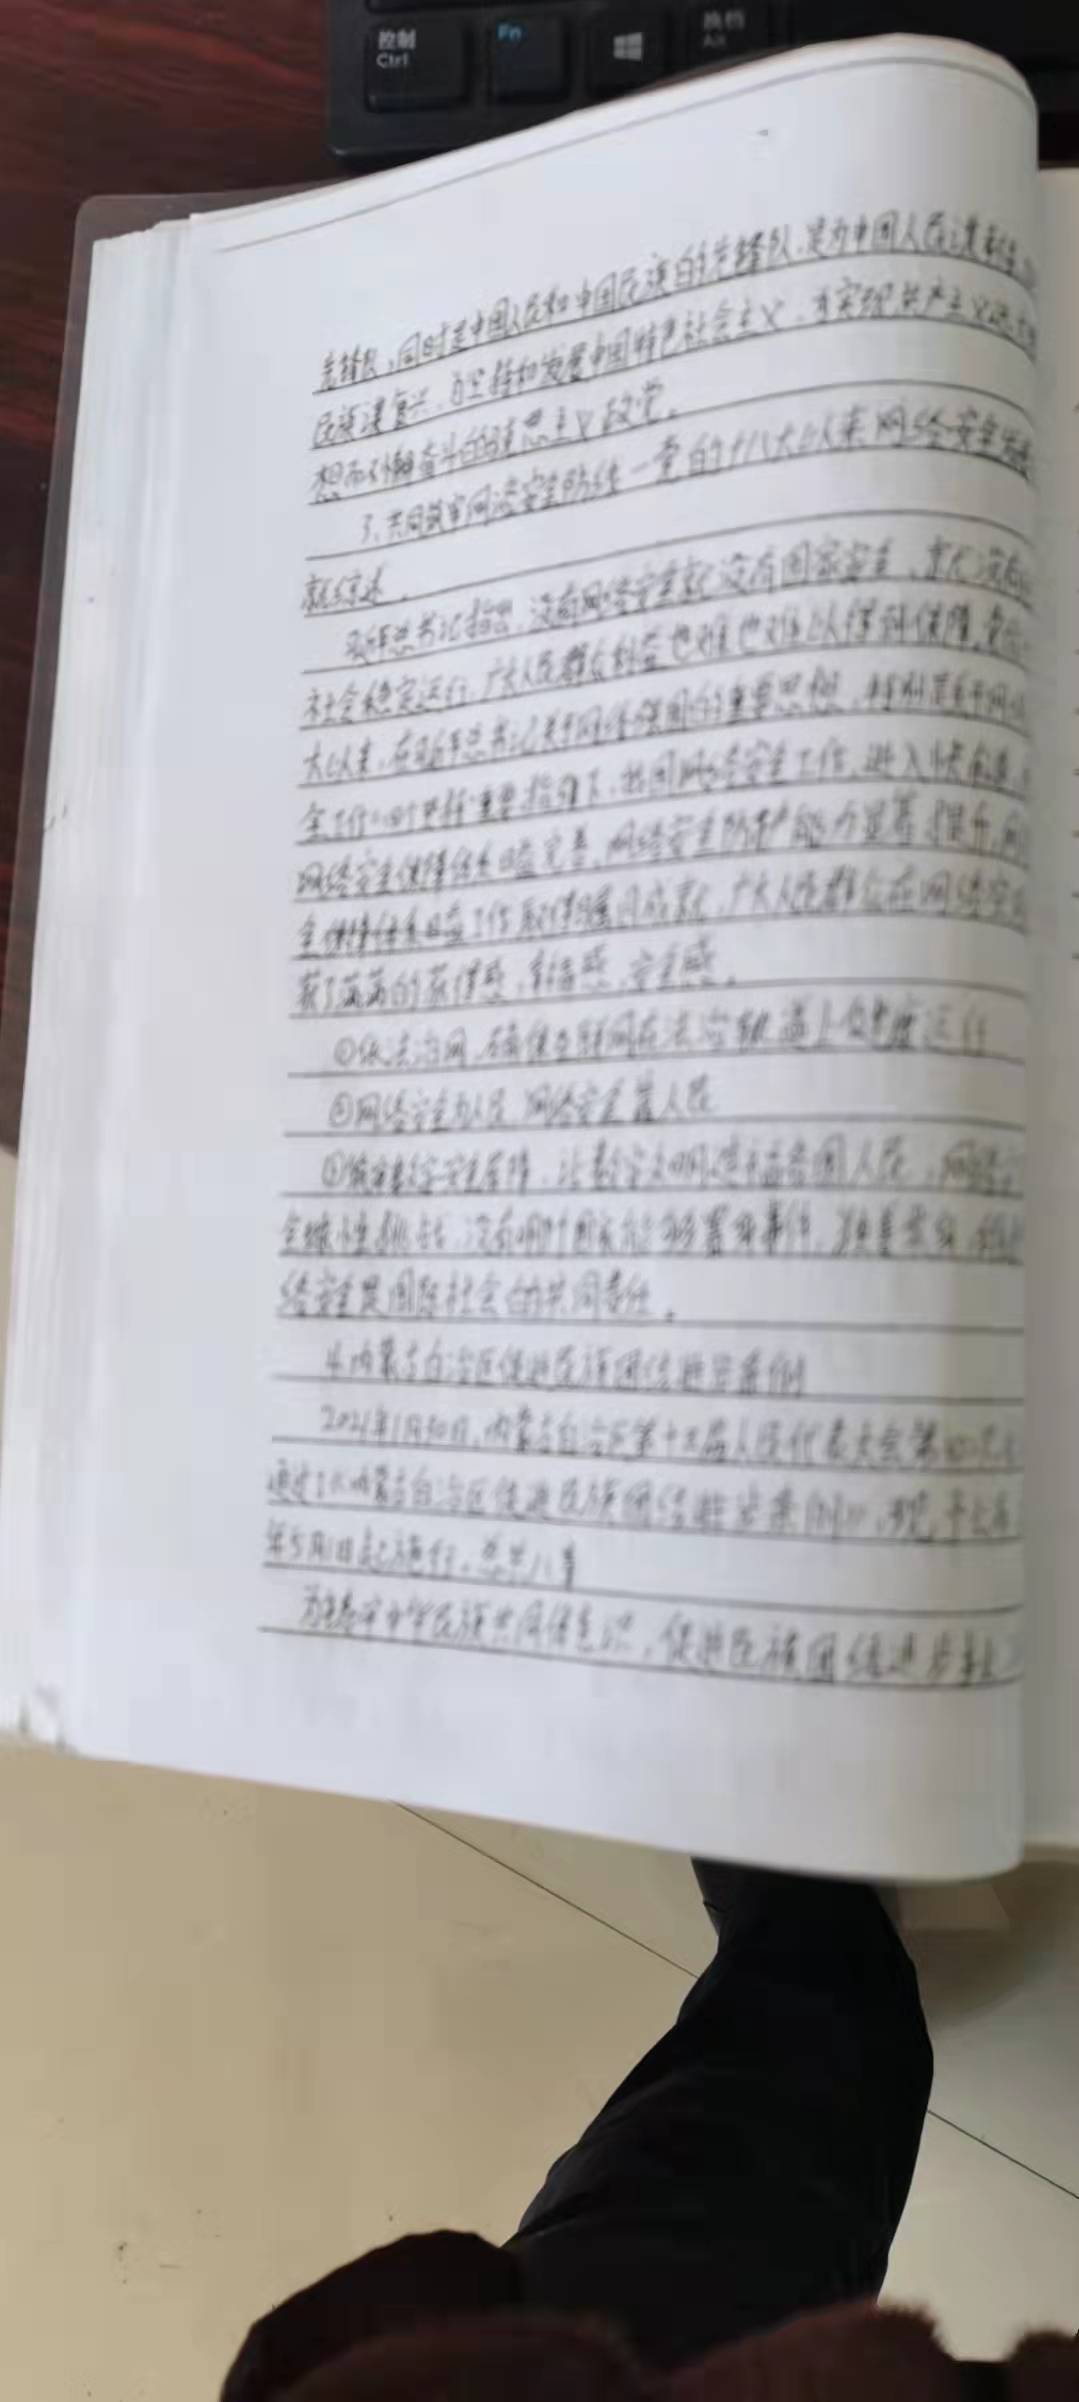 控制
Ctrl
Fn
换档
Alt
先锋队,同时是中国人民和中国民族的先锋队,是为中国人民谋幸福
民族谋复兴,为坚持和发展中国特色社会主义,为实现共产主义远大
想而不懈奋斗的马克思主义政党。
3、共同筑牢网络安全防线一党的十八大以来网络安全
就综述。
习近平总书记指出,没有网络安全就没有国家安全,就没有
社会稳定运行,广大人民群众利益也难也难以得到保障,党的
大以来,在习近平总书记关于网络强国的重要思想,特别是关于网络
全工作 重要指导下,我国网络安全工作,进入快车道,
网络安全保障体系日益完善,网络安全防护能力显著提升,网
全保障体系日益工作取得 成就,广大人民群众在网络空间
获了满满的获得感,幸福感,安全感。
①依法治网,确保互联网在法治轨道上健康运行
②网络安全为人民,网络安全靠人民
③筑牢数字安全屏障,让数字文明造福各国人民,网络
全球性挑战,没有哪个国家能够置身事外,独善其身,
络安全是国际社会的共同责任。
4.内蒙古自治区促进民族团结进步条例
2021年1月30日,内蒙古自治区第十三届人民代表大会第四次
通过了《内蒙古自治区促进民族团结进步条例》,现予公布
年5月1日起施行。总共八章
为铸牢中华民族共同体意识,促进民族团结进步事业